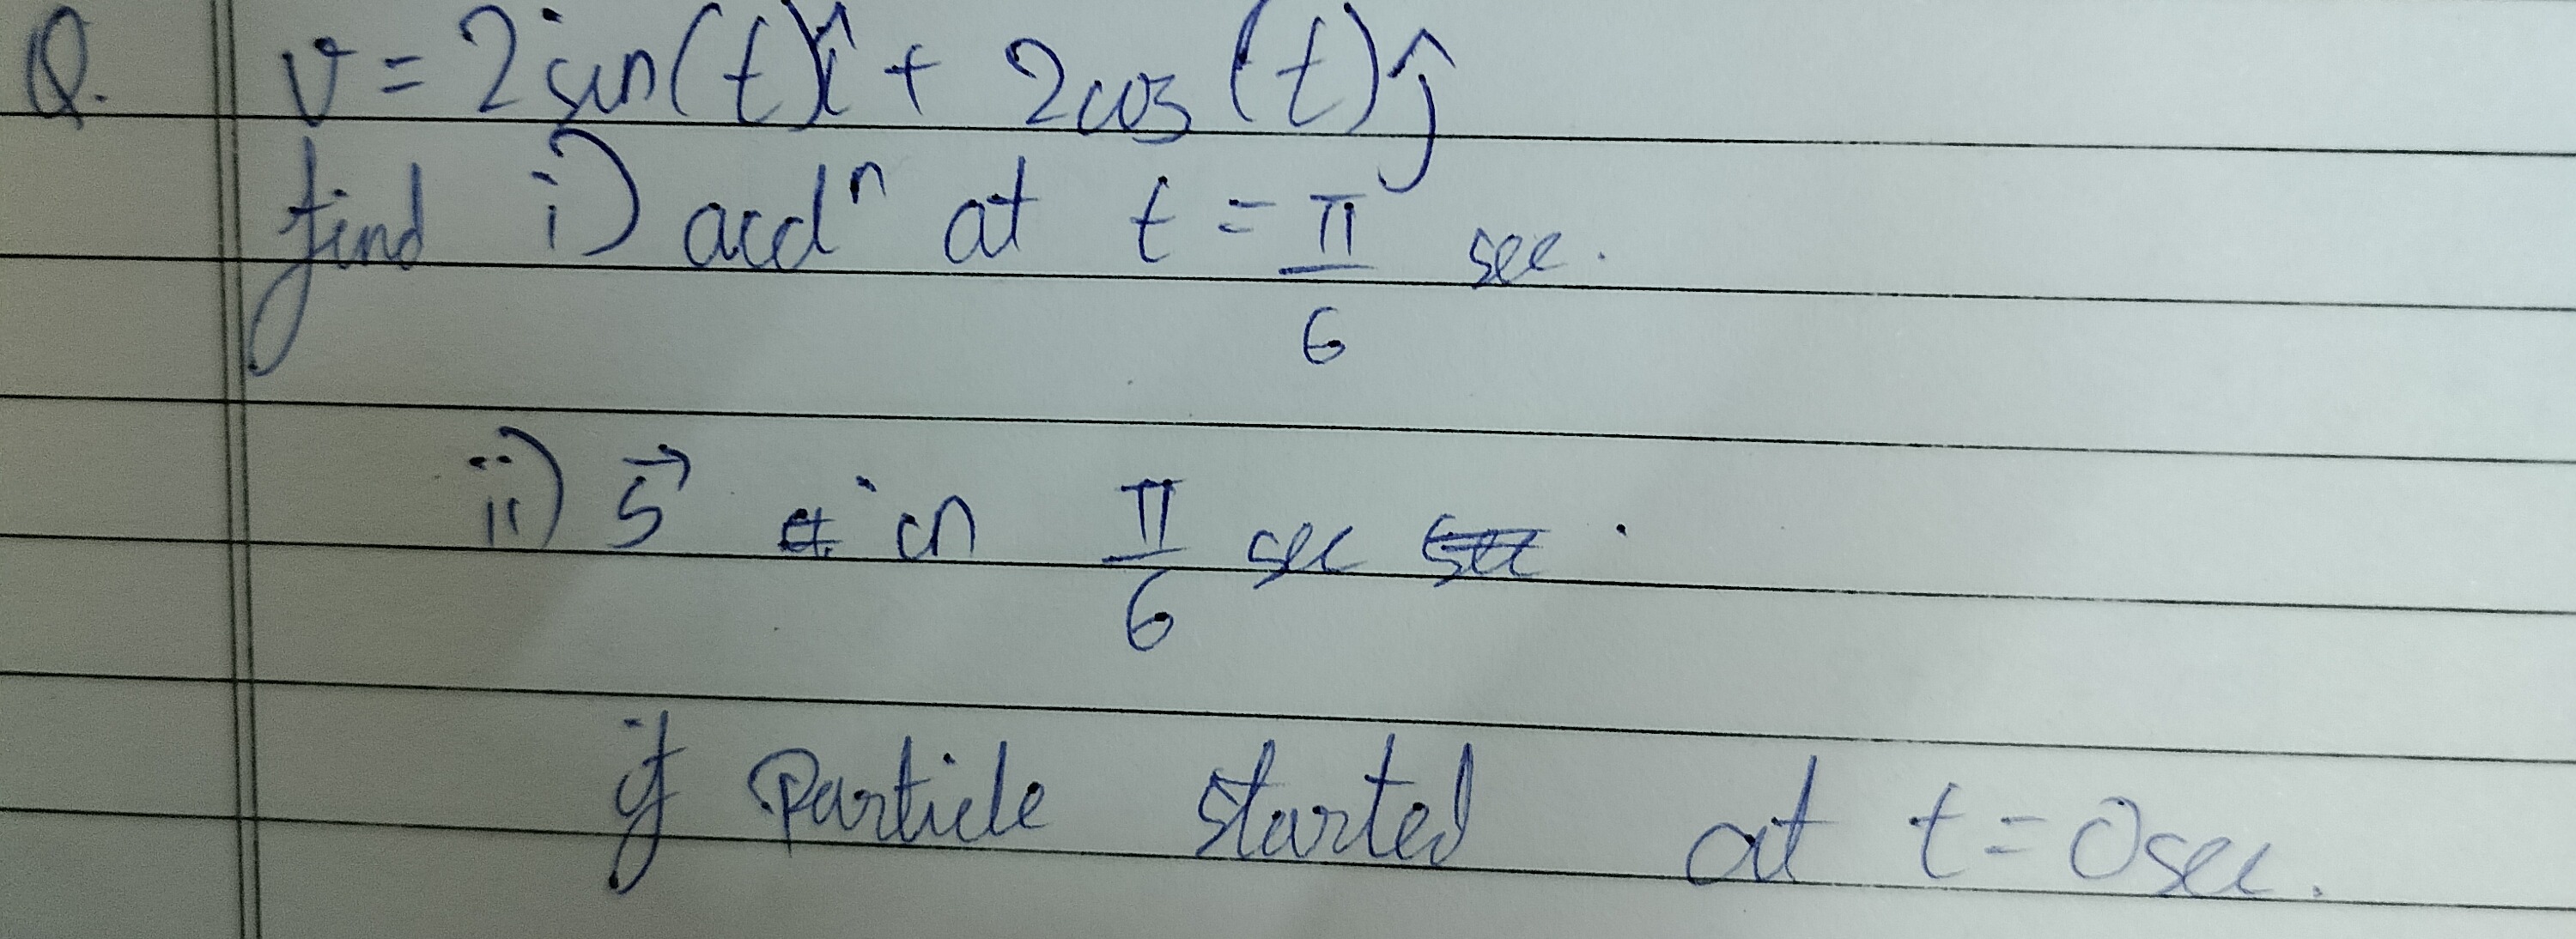 Q. v = 2 sin(t)î + 2cos(t)ĵ
find i) accln at t = π/6 sec.
ii) s⃗ in π/6 sec .
if Particle started at t = 0 sec.